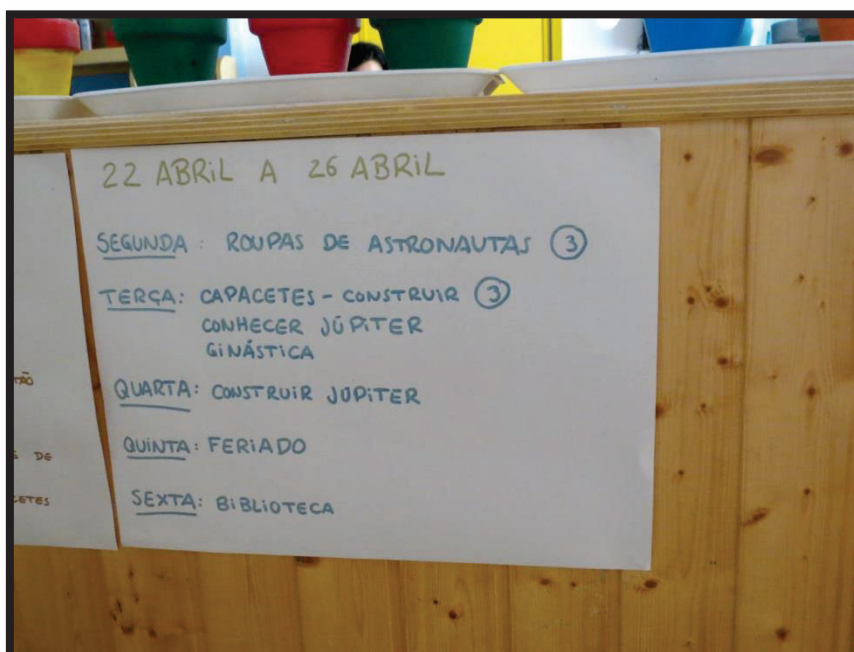 22 ABRIL A 26 ABRIL
SEGUNDA: ROUPAS DE ASTRONAUTAS 3
TERÇA: CAPACETES - CONSTRUIR 3
CONHECER JÚPITER
GINÁSTICA
QUARTA: CONSTRUIR JÚPITER
QUINTA: FERIADO
SEXTA: BIBLIOTECA
DE